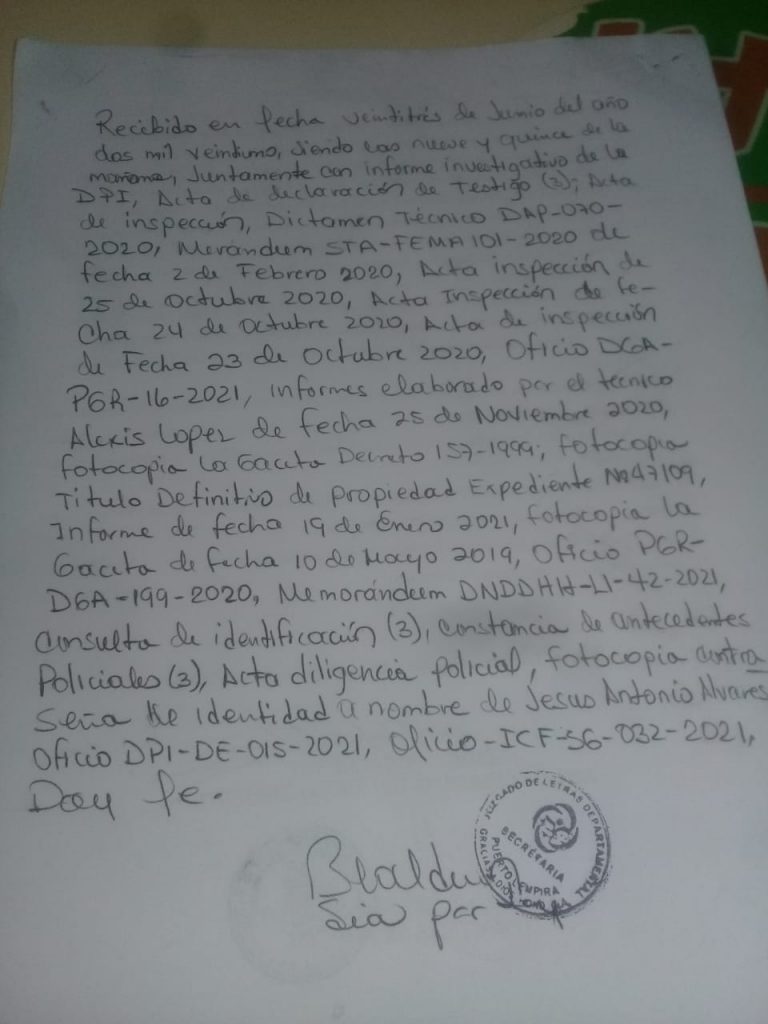 Recibido en fecha veintitrés de Junio del año
dos mil veintiuno, siendo las nueve y quince de la
mañana, Juntamente con informe investigativo de la
DPI, Acta de declaración de Testigo (3); Acta
de inspección, Dictamen Técnico DAP-070-
2020, Merándum STA-FEMA 101-2020 de
fecha 2 de Febrero 2020, Acta inspección de
25 de Octubre 2020, Acta Inspección de fe-
cha 24 de Octubre 2020, Acta de inspección
de Fecha 23 de Octubre 2020, Oficio DGA-
PGR-16-2021, informes elaborado por el tecnico
Alexis Lopez de fecha 25 de Noviembre 2020,
fotocopia La Gaceta Decreto 157-1999; fotocopia
Titulo Definitivo de propiedad Expediente No 47109,
Informe de fecha 19 de Enero 2021, fotocopia La
Gaceta de fecha 10 de Mayo 2019, Oficio PGR-
DGA-199-2020, Memorándum DNDDHH-LI-42-2021,
Consulta de identificación (3), Constancia de antecedentes
Policiales (3), Acta diligencia policial, fotocopia contra
Seña de identidad a nombre de Jesus Antonio Alvares
Oficio DPI-DE-015-2021, Oficio-ICF-SG-032-2021,
Doy fe.
JUZGADO DE LETRAS DEPARTAMENTAL
SECRETARIA
PUERTO LEMPIRA
GRACIAS A DIOS
Sia por